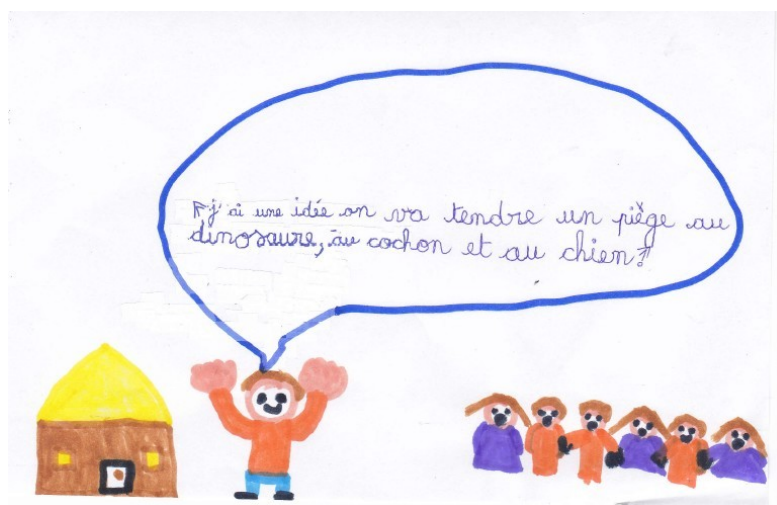 j'ai une idée on va tendre un piège au
dinosaure, au cochon et au chien !